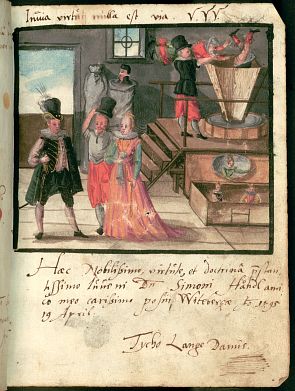 Invia virtuti nulla est via VVV
Hæc Nobilissimo, virtute et doctrina præstan
tissimo Iuveni Dn Simoni Händl ami
co meo carissimo posui Witebergæ Aº 1595
19 April.
Tycho Lange Danus.